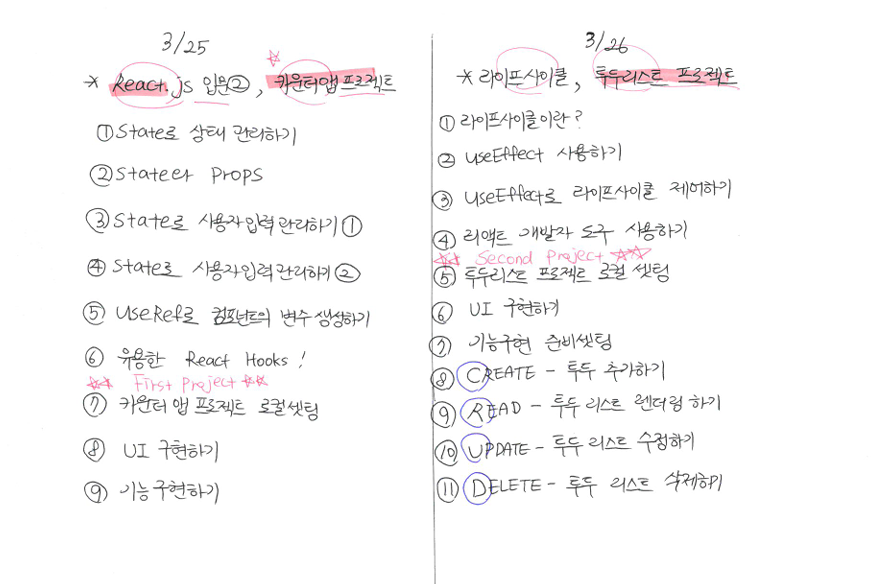 3/25
* React.js 입문②, 카운터앱 프로젝트
① State로 상태 관리하기
② State와 Props
③ State로 사용자입력 관리하기 ①
④ State로 사용자입력관리하기 ②
⑤ UseRef로 컴포넌트의 변수 생성하기
⑥ 유용한 React Hooks!
☆☆ First Project ☆☆
⑦ 카운터 앱 프로젝트 로컬셋팅
⑧ UI 구현하기
⑨ 기능구현하기
3/26
* 라이프사이클, 투두리스트 프로젝트
① 라이프사이클이란?
② UseEffect 사용하기
③ UseEffect로 라이프사이클 제어하기
④ 리액트 개발자 도구 사용하기
☆☆ Second Project ☆☆
⑤ 투두리스트 프로젝트 로컬 셋팅
⑥ UI 구현하기
⑦ 기능구현 준비셋팅
⑧ CREATE - 투두 추가하기
⑨ READ - 투두 리스트 렌더링 하기
⑩ UPDATE - 투두 리스트 수정하기
⑪ DELETE - 투두 리스트 삭제하기